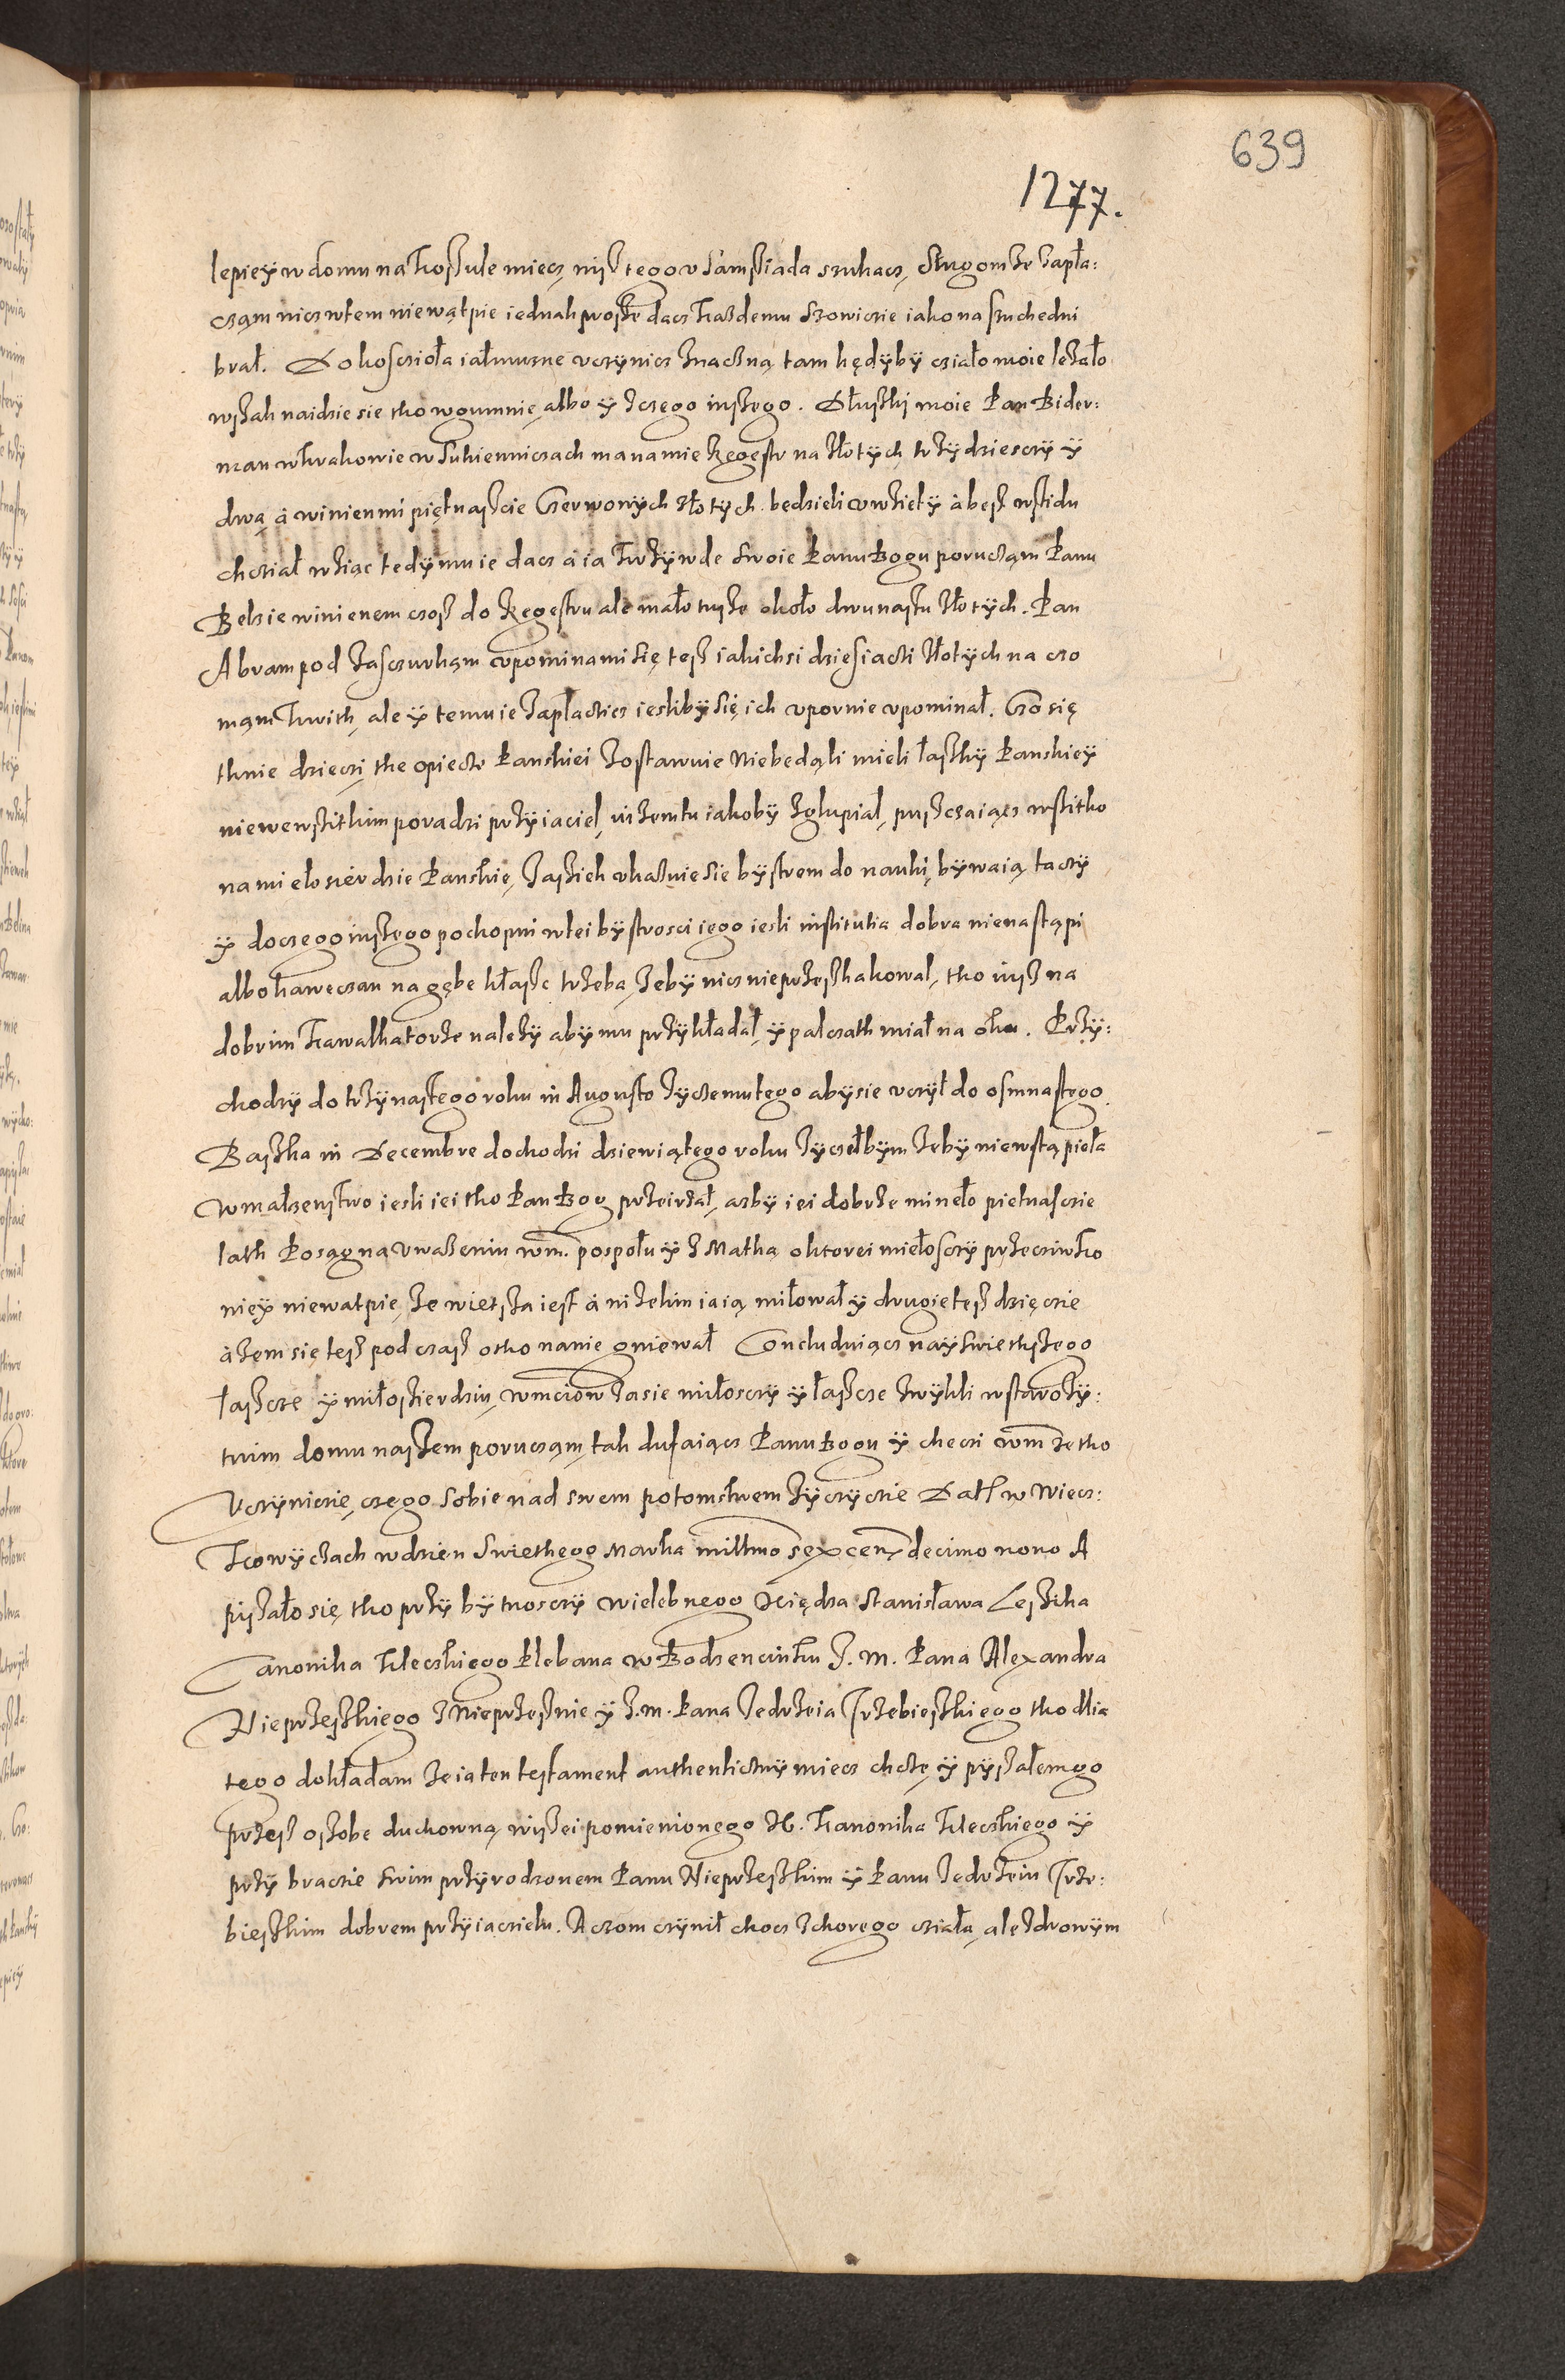 639
1277.
lepiey w domu na Koszule miecz, nisz tego v Samsziada szukacz, Slugom ze zapła:
czam nicz wtem niewątpie iednak proszę dacz Każdemu Szowicie iako na suchedni
brał. Do kosczioła iałmuzne vczynicz znaczną tam kędyby cziało moie leżało
wszak naidzie sie tho w gumnie, albo y z czego inszego. Dłuszki moie Pan Bider:
man w krakowie w Sukienniczach ma na mie Regestr na złotych trzydziesczy y
dwą á winien mi piętnaszcie Czerwonych złotych. bedzieli vwziety á besz wstidu
chcział wziąc tedy mu ie dacz á ia Krzywde Swoie Panu Bogu poruczam Panu
Belzie winienem czosz do Regestru ale mało tusze około dwunastu złotych. Pan
Abram pod Jasczurką vpomina mi się tesz iakichsi dziesiączi złotych na czo
mam Kwith, ale y temu ie zapłaczicz iesliby się ich vpornie vpominał. Czo się
tknie dzieczi the opiecze Panskiei zostawuie Niebedąli mieli łaszky Panskiey
niewewszitkim poradzi przyiaciel, isz tu iakoby zglupial, puszczaiącz wszitko
na miełosierdzie Panskie, Jasziek vkażuie sie bystrem do nauki, bywaią taczy
y do czego inszego pochopni w tei bystrosci iego iesli institutia dobra nienastąpi
albo kaweczan na gębe kłaszc trzeba, żeby nicz nieprzeszkakowal, tho iusz na
dobrim Kawalkatorze należy aby mu przykładał, y palczath miał na oku. Przy:
chodzy do trzynastego roku in Augusto zyczemu tego aby sie vczył do osmnastego.
Baszka in Decembre dochodzi dziewiątego roku zyczełbym żeby niewstąpieła
w małzenstwo iesli iei tho Pan Bog przeirzał, azby iei dobrze mineło pietnasczie
lath Posąg na vważeniu wm. pospołu y z Mathą o ktorei miełosczy przecziwko
niey niewatpie, że wietsza iest á niżelim ia ią miłował y drugie tesz dzięczie
á żem się tesz podczasz o tho nanie gniewał Concluduiącz naySwiethszego
łaszcze y miłoszierdziu, wmciow zasie miłosczy y łaszcze zwykli w starozy:
tnim domu naszem poruczam, tak dufaiącz Panu Bogu y checzi wm ze tho
Vczyniczie, czego sobie nad swem potomstwem życzyczie Dath w Wiecz:
Kowyczach w dzien Swiethego Marka millmo sexcen decimo nono A
piszało się tho przy bytnosczy wielebnego Xiędza Stanisława Leszika
Canonika Kieczkiego Plebana w Bodzencinku J. M. Pana Alexandra
Nieprzeszkiego z Nieprzesnie y J. M. Pana Jedrzeia Trzebieszkiego tho dlia
tego dokładam ze ia ten testament authenticzny miecz chcze, y pyszałem go
przesz oszobe duchowną, wyszei pomienionego X. Kanonika Kieczkiego y
przy braczie Swim przyrodzonem Panu Nieprzeszkim y Panu Jedrzeiu Trze:
bieszkim dobrem przyiaczielu. A czom czynił chocz z chorego cziała, ale zdrowym